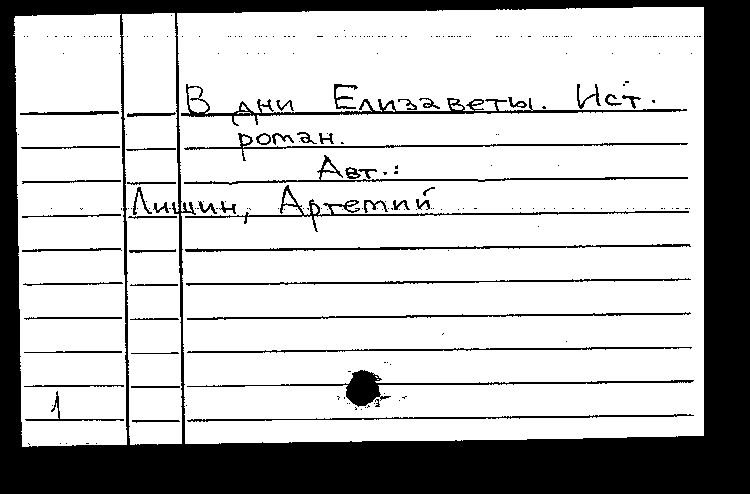 В дни Елизаветы. Ист.
роман.
Авт.:
Лишин, Артемий
1